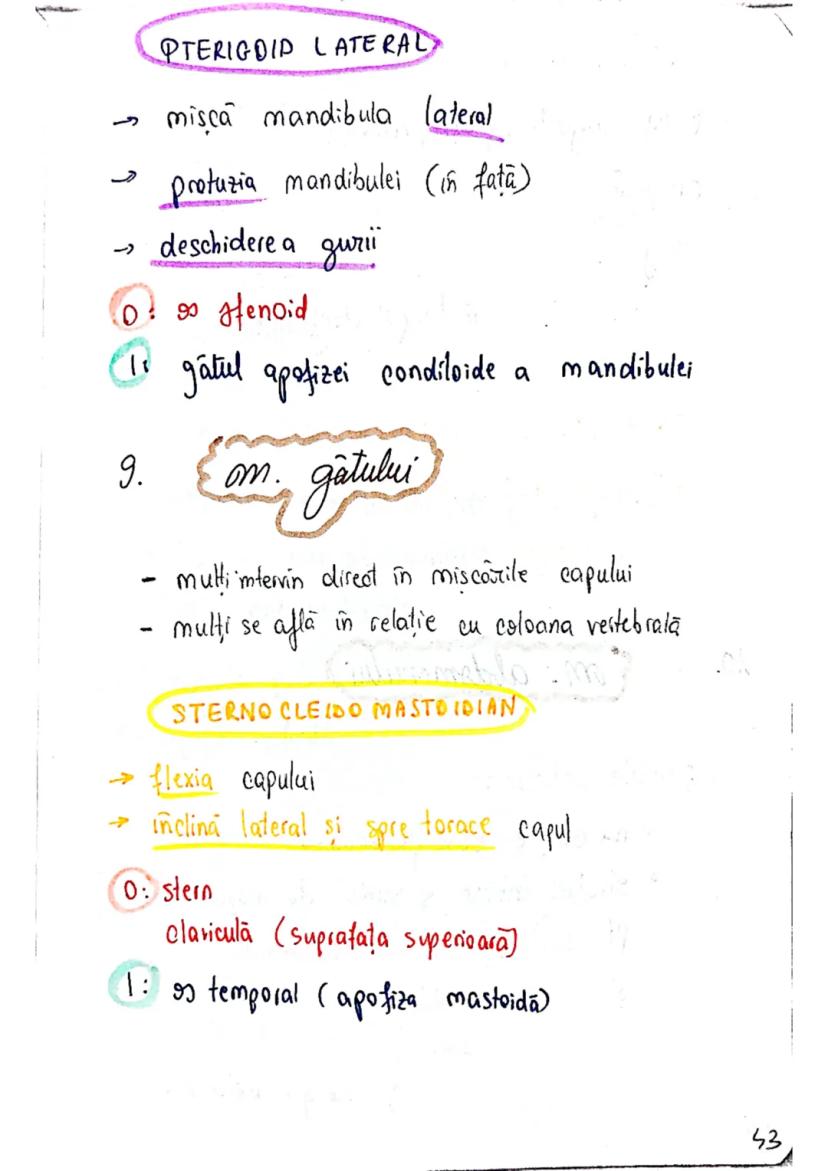 PTERIGOID LATERAL
→ mișcă mandibula lateral
→ protuzia mandibulei (în față)
→ deschiderea gurii
O: os sfenoid
I: gâtul apofizei condiloide a mandibulei
9. m. gâtului
- mulți intervin direct în mișcările capului
- mulți se află în relație cu coloana vertebrală
STERNOCLEIDOMASTOIDIAN
→ flexia capului
→ înclină lateral și spre torace capul
O: stern
claviculă (suprafața superioară)
I: os temporal (apofiza mastoidă)
43